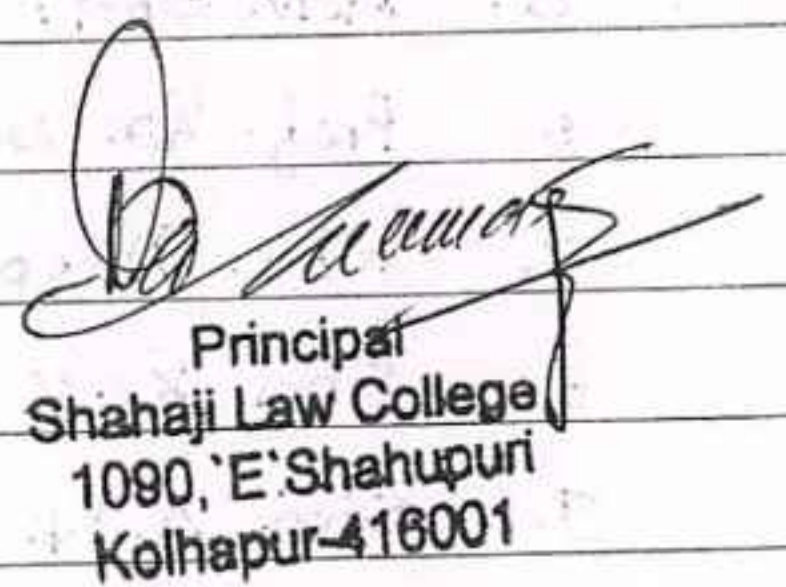 Principal
Shahaji Law College
1090,`E`Shahupuri
Kolhapur-416001